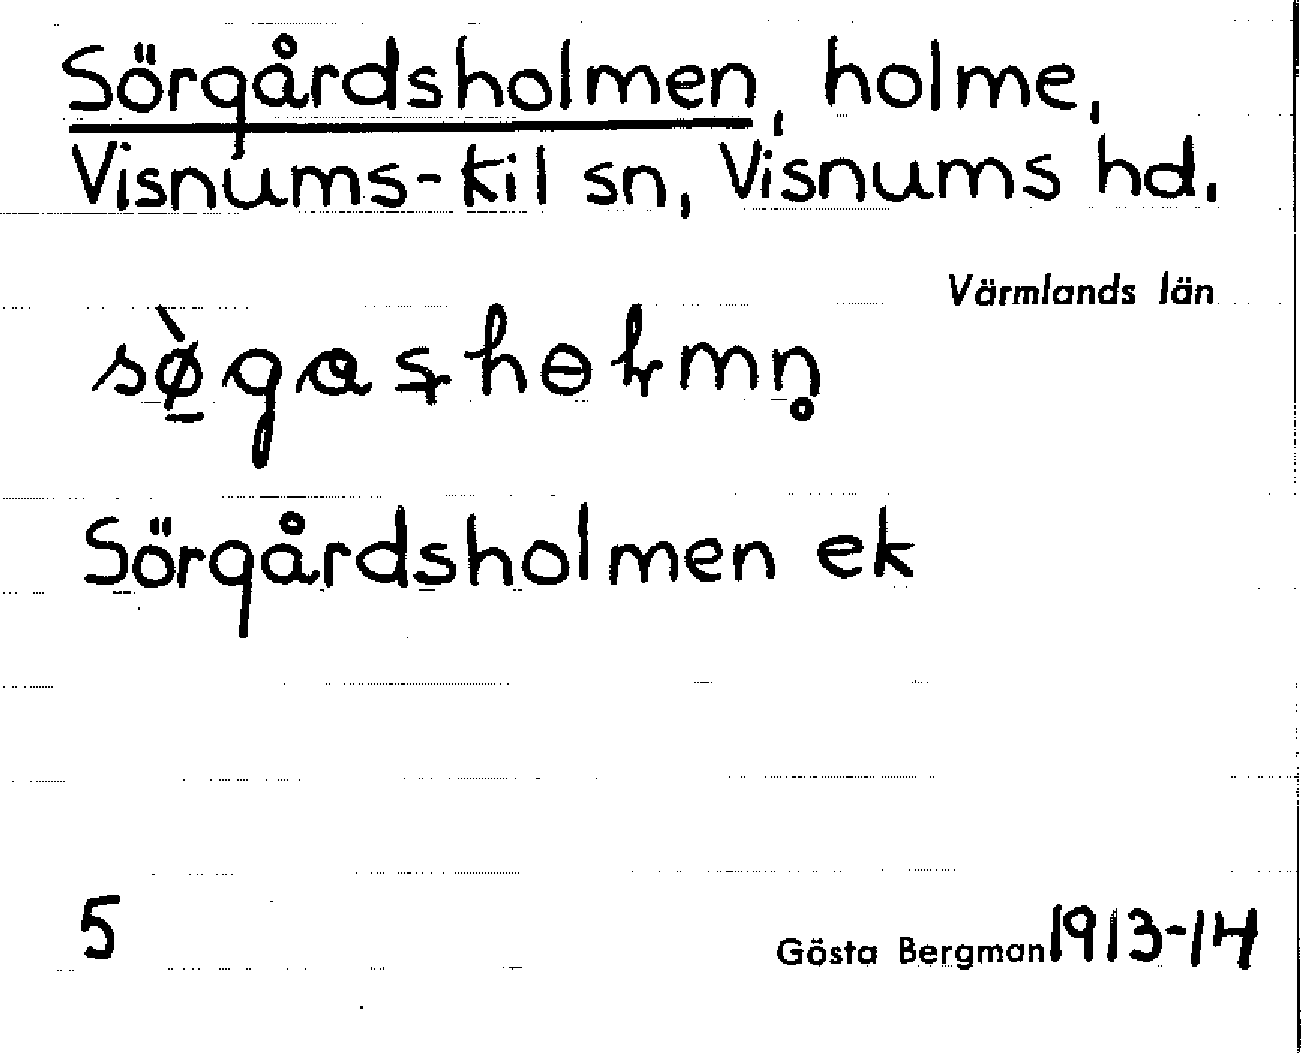 Sörgårdsholmen, holme,
Visnums-Kil sn, Visnums hd.
Värmlands län
Sörgårdsholmen ek
5
Gösta Bergman 1913-14